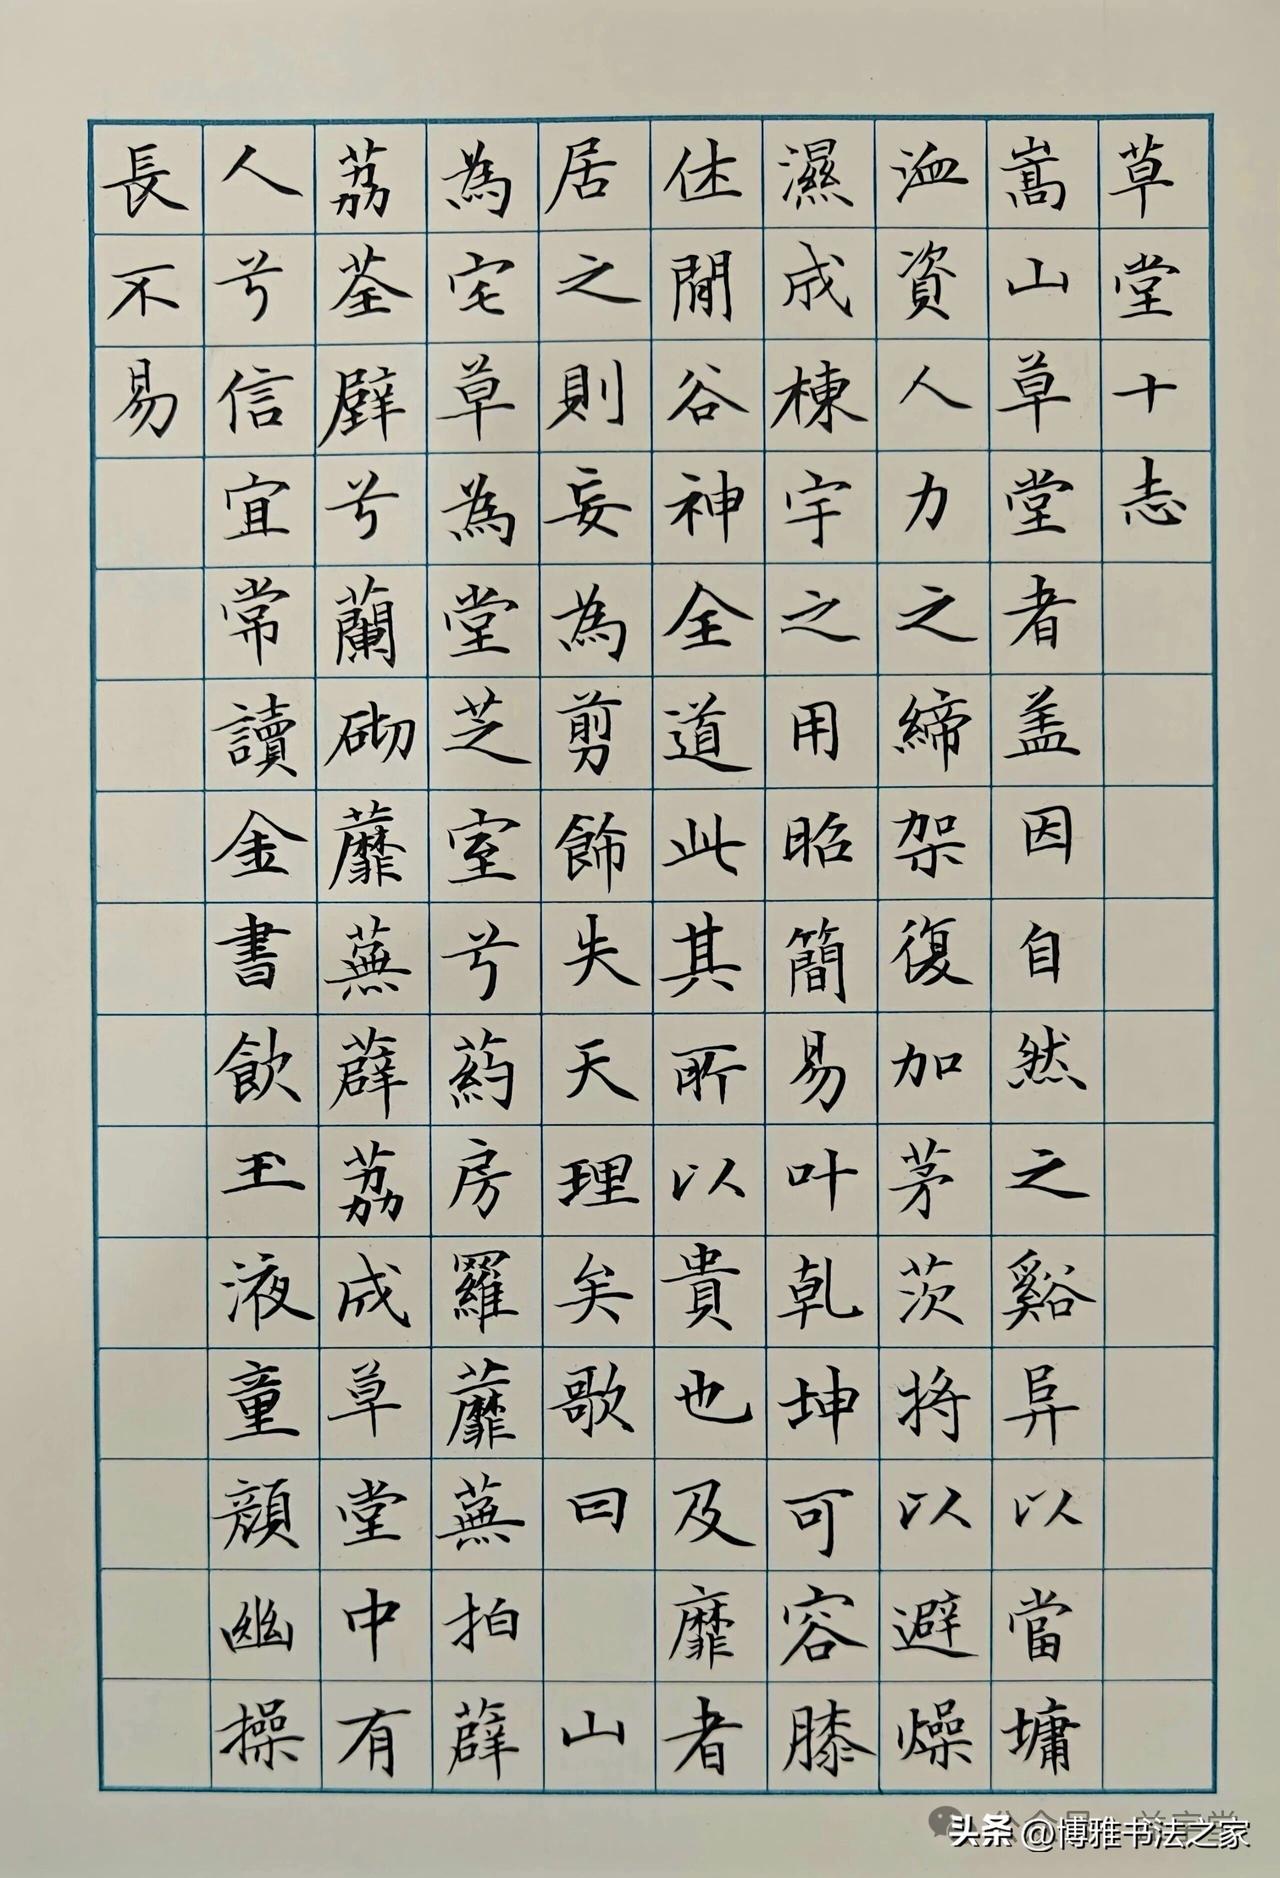 草堂十志
嵩山草堂者盖因自然之谿阜以當墉
洫資人力之締架復加茅茨将以避燥
濕成棟宇之用昭簡易叶乾坤可容膝
休閒谷神全道此其所以貴也及靡者
居之則妄為剪飾失天理矣歌曰 山
為宅草為堂芝室兮葯房羅蘼蕪拍薜
荔荃壁兮蘭砌蘼蕪薜荔成草堂中有
人兮信宜常讀金書飲玉液童顔幽操
長不易
头条 @博雅书法之家